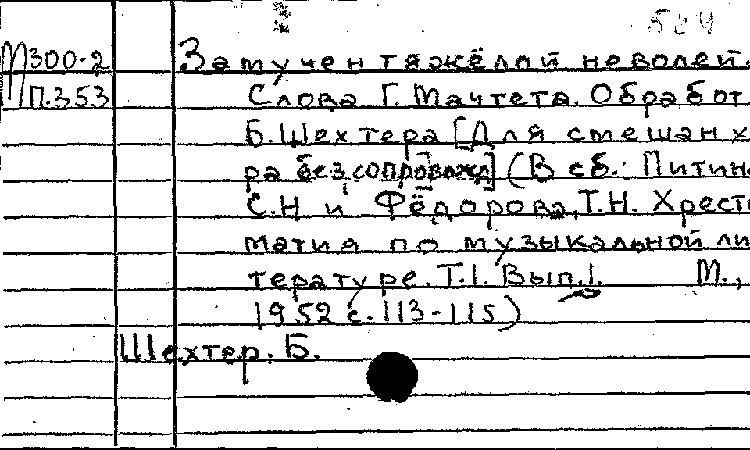 504
М300-2 Замучен тяжёлой неволей.
П.353 Слова Г. Мачтета. Обработ
Б. Шехтера [Для смешан х
ра без сопровожд] (В сб.: Питин
С.Н и Фёдорова, Т.Н. Хресто
матия по музыкальной ли
тературе. Т.I. Вып.I. М.,
1952 с. 113-115)
Шехтер. Б.